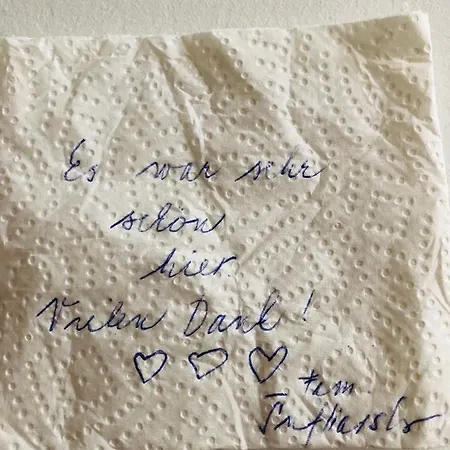 Es war sehr
schön
hier.
Vielen Dank!
♡ ♡ ♡
Fam.